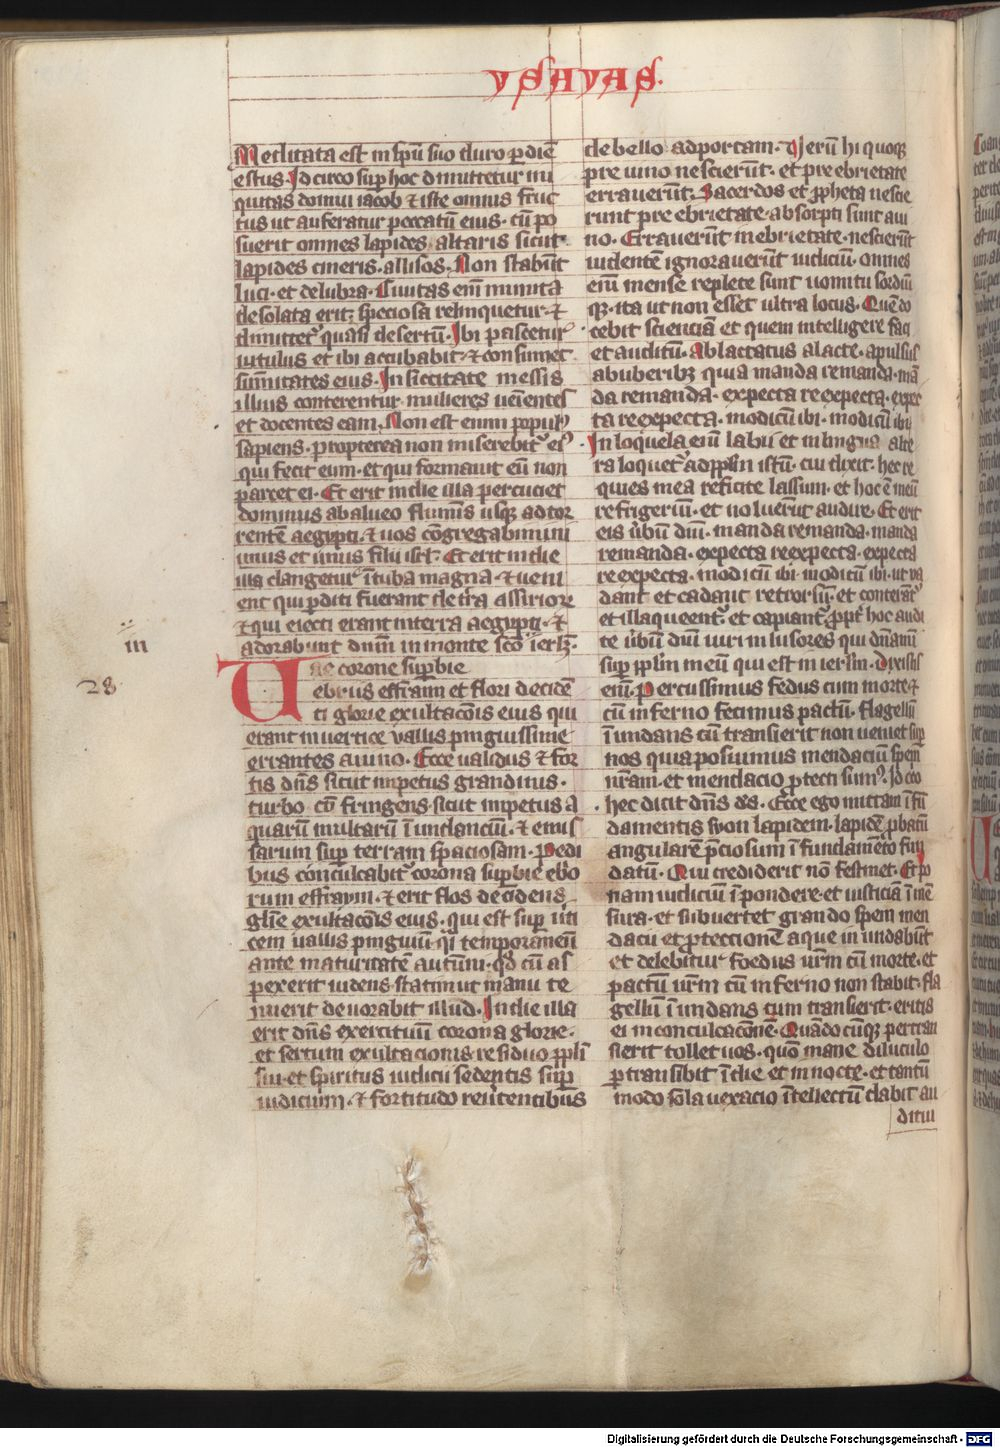 YSAYAS.
Meditata est in spũ suo duro p diẽ
estus. Idcirco sup hoc dimittetur ini
quitas domui iacob & iste omnis fruc
tus ut auferatur peccatũ eius. cũ po
suerit omnes lapides altaris sicut
lapides cineris. allisos. Non stabũt
luci. et delubra. Civitas enĩ munita
desolata erit: speciosa relinquetur. &
dimittet' quasi desertũ. Ibi pascetur
vitulus et ibi accubabit & consumet
sũmitates eius. In siccitate messis
illius conterentur. mulieres veĩentes
et docentes eam. Non est enim popul'
sapiens. propterea non miserebit' ei'
qui fecit eum. et qui formavit eũ non
parcet ei. Et erit in die illa percuciet
dominus ab alveo fluminis usq; ad tor
rentẽ aegypti. & vos cõgregabimini
unus et unus filii isrl. Et erit in die
illa clangetur ĩ tuba magna. & veni
ent qui pditi fuerant de tr̃a assirior
& qui eiecti erant in terra aegypti. &
adorabunt dnm̃ in monte sc̃o ierlm.
III
28
Uae corone supbie
ebrius effraim et flori decidẽ
ti glorie exultac̃ois eius qui
erant in vertice vallis pinguissime
errantes a vino. Ecce validus & for
tis dñs sicut impetus grandinis.
turbo cõfringens. sicut impetus a
quarũ multarũ ĩundanciũ. & emis
sarum sup terram spaciosam. Pedi
bus conculcabit' corona supbie ebrio
rum effraym. & erit flos decidens
glr̃e exultac̃ois eius. qui est sup v̾ti
cem vallis pinguiũ. q̃i temporaneũ
ante maturitatẽ autũni. qd cũ as
pexerit videns statim ut manu te
nuerit devorabit illud. In die illa
erit dñs exercituũ corona glorie.
et sertum exultacionis residuo ppl̃i
sui. et spiritus iudicii sedentis sup
iudicium. & fortitudo revertentibus
de bello ad portam. Verũ hi quoq;
pre vino nescierũt. et pre ebrietate
erraverũt. Sacerdos et ppheta nescie
runt pre ebrietate. absorpti sunt a vi
no. Erraverũt in ebrietate. nescierũt
videntẽ ignoraverũt iudiciũ. omnes
enĩ mense replete sunt vomitu sordiũ
q;. ita ut non esset ultra locus. Quẽ do
cebit scienciã et quem intelligere faci
et auditũ. Ablactatus a lacte. apulsus
ab uberib; quia manda remanda. mã
da remanda. expecta reexpecta. expec
ta reexpecta. modicũ ibi. modicũ ibi
In loquela enĩ labii et in lingua alte
ra loquet' ad pplm istũ. cui dixit. hec re
quies mea reficite lassum. et hoc ẽ meũ
refrigeriũ. et noluerũt audire. Et erit
eis ṽbũ dnĩ. manda remanda. manda
remanda. expecta reexpecta. expecta
reexpecta. modicũ ibi. modicũ ibi. ut va
dant et cadant retrorsũ. et conterãt'
et illaqueent'. et capiant'. ppt' hoc audi
te ṽbũ dnĩ viri inlusores qui dñamĩ
sup pplm meũ qui est in ierlm. Dixistis
enĩ. Percussimus fedus cum morte. &
cũ inferno fecimus pactũ. flagellũ
ĩundans cũ transierit non veniet sup
nos quia posuimus mendaciũ spem
nr̃am. et mendacio ptecti sum'. Idcirco
hec dicit dñs ds. Ecce ego mittam ĩ fũ
damentis syon lapidem. lapidẽ pbatũ
angularẽ p̃ciosum ĩ fundamẽto fun
datũ. Qui crediderit nõ festinet. Et po
nam iudiciũ ĩ pondere. et iusticiã ĩ mẽ
sura. et subvertet grando spem men
dacii et ptectionẽ aque inundabũt
et delebitur foedus vr̃m cũ morte. et
pactũ vr̃m cũ inferno non stabit. fla
gellũ ĩundans cum transierit. eritis
ei in conculcac̃onẽ. Quãdocũq; pertran
sierit tollet vos. quõ mane diluculo
ptransibit ĩ die et in nocte. et tantũ
modo sola vexacio ĩtellectũ dabit au
ditui
Digitalisierung gefördert durch die Deutsche Forschungsgemeinschaft - DFG